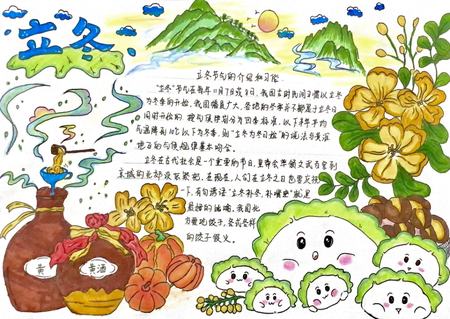 立冬
立冬节气的介绍和习俗
"立冬"节气在每年11月7日或8日,我国古时民间习惯以立冬
为冬季的开始,我国幅员广大,各地的冬季并不都是于立冬日
同时开始的。按气候学划分四季标准,以下半年平均
气温降到10℃以下为冬季,则"立冬为冬日始"的说法与黄淮
地区的气候规律基本吻合。
立冬在古代社会是一个重要的节日,皇帝会率领文武百官到
京城的北郊设坛祭祀。在现在,人们在立冬之日也要庆祝
一下,有句谚语"立冬补冬,补嘴空"就是
最好的比喻。我国北
方要吃饺子,
的饺子很灵。
黄
黄酒